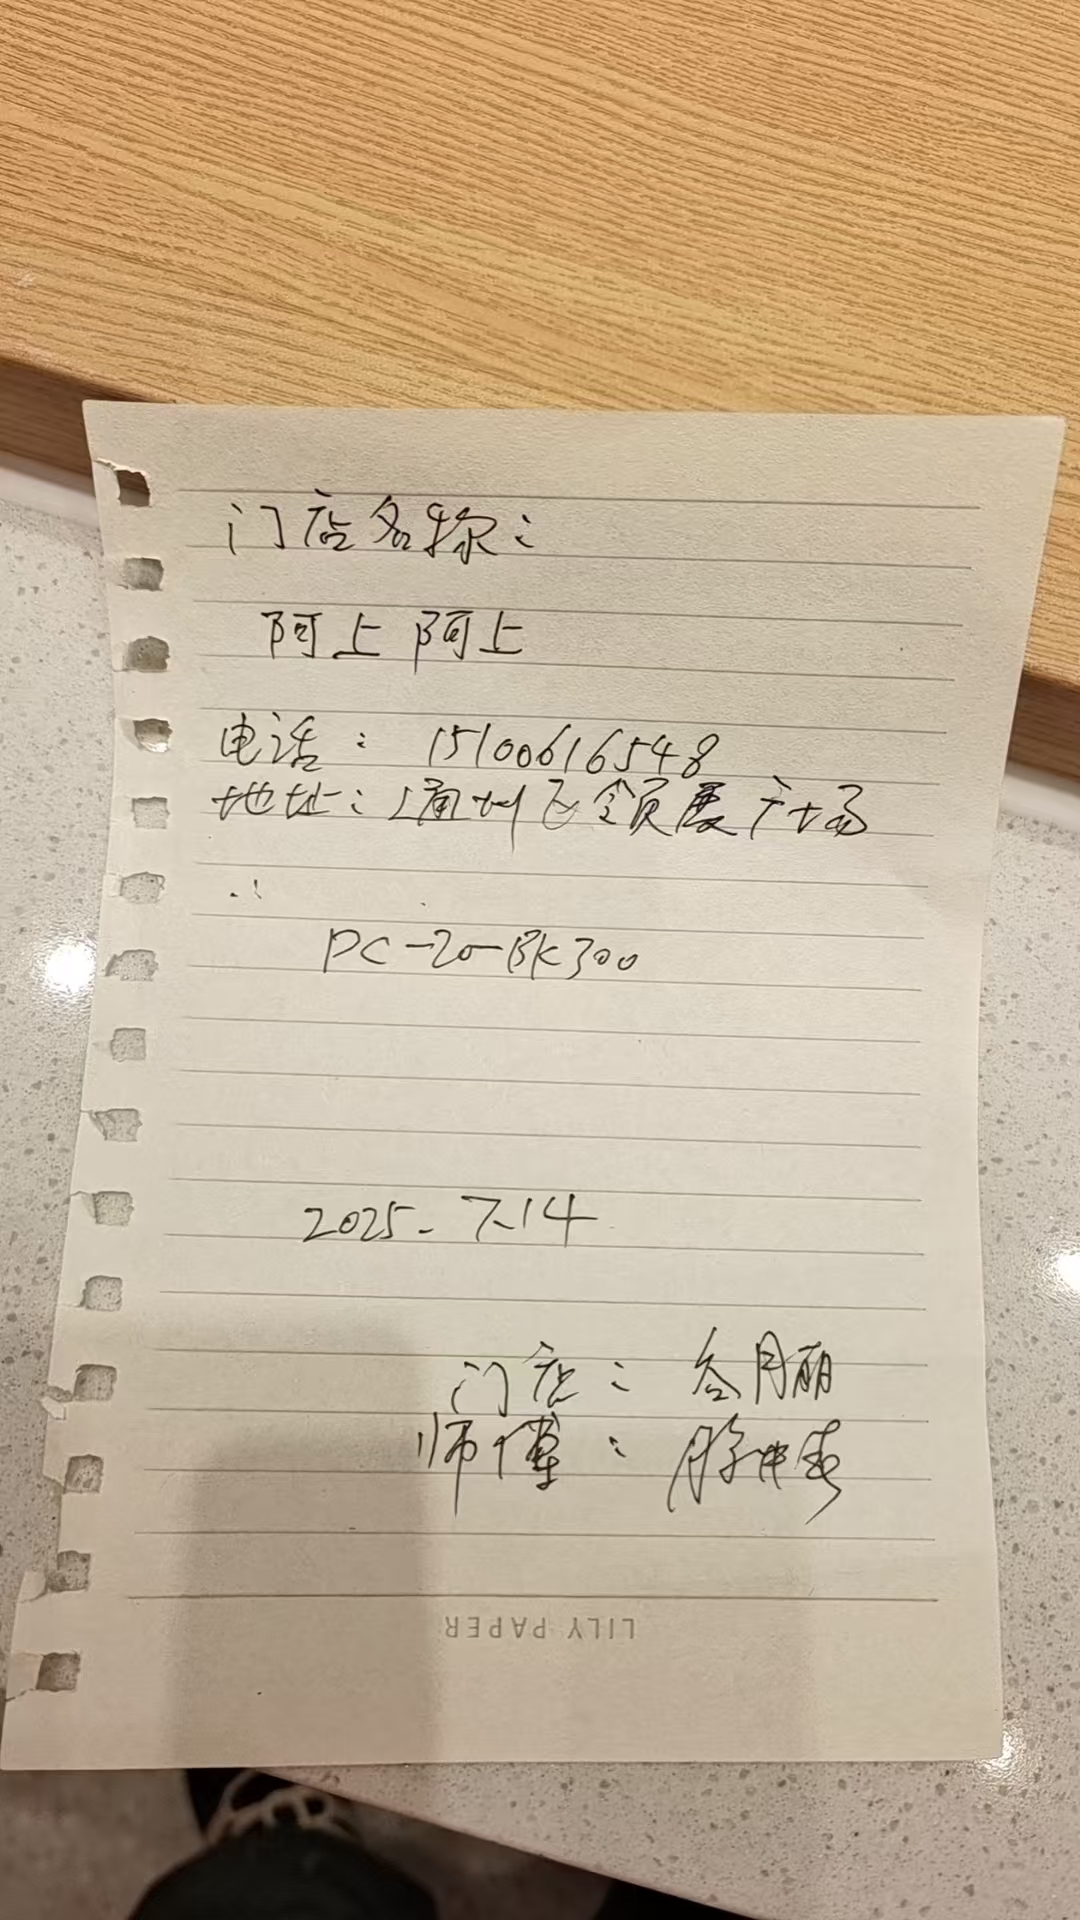 门店名称：
阿上阿上
电话：15100616548
地址：通州区领展广场
PC-20-BK300
2025.7.14
门店：谷月丽
师傅：
LILY PAPER